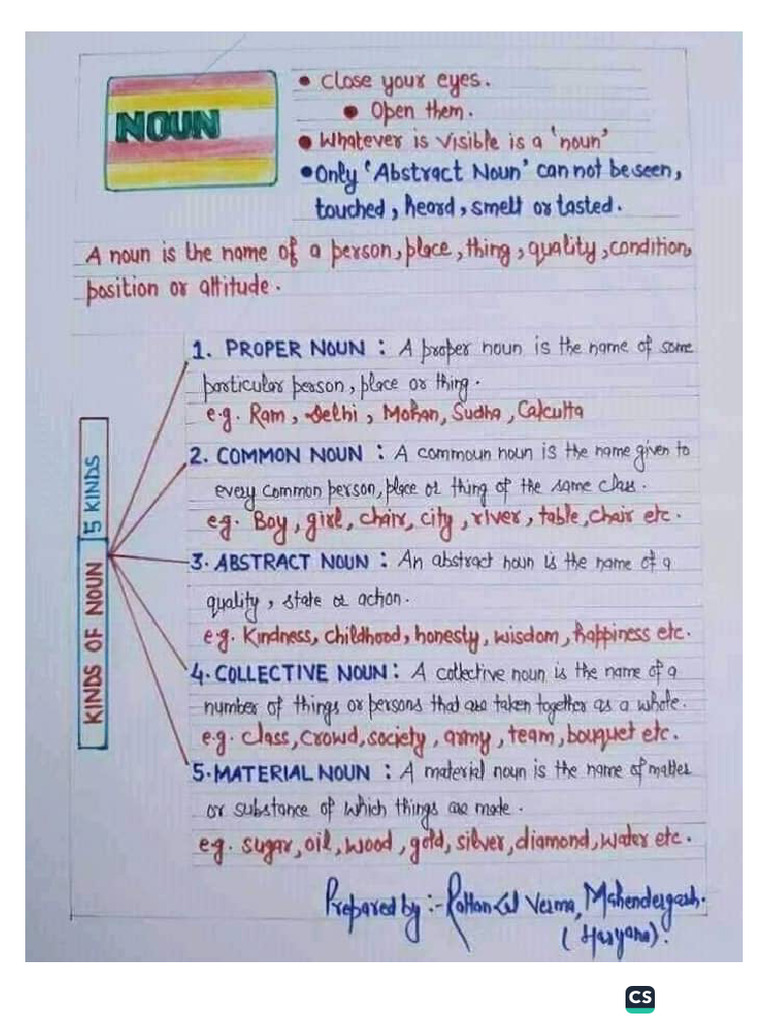 NOUN
• Close your eyes.
• Open them.
• Whatever is visible is a 'noun'
• Only 'Abstract Noun' can not be seen,
touched, heard, smelt or tasted.
A noun is the name of a person, place, thing, quality, condition,
position or altitude.
KINDS OF NOUN 5 KINDS
1. PROPER NOUN : A proper noun is the name of some
particular person, place or thing.
e.g. Ram, Delhi, Mohan, Sudha, Calcutta
2. COMMON NOUN : A commoun noun is the name given to
every common person, place or thing of the same class.
e.g. Boy, girl, chair, city, river, table, chair etc.
3. ABSTRACT NOUN : An abstract noun is the name of a
quality, state or action.
e.g. Kindness, childhood, honesty, wisdom, happiness etc.
4. COLLECTIVE NOUN : A collective noun is the name of a
number of things or persons that are taken together as a whole.
e.g. class, crowd, society, army, team, bouquet etc.
5. MATERIAL NOUN : A material noun is the name of matter
or substance of which things are made.
e.g. sugar, oil, wood, gold, silver, diamond, water etc.
Prepared by :- Rattan Lal Verma, Mahendergarh.
(Haryana).
CS